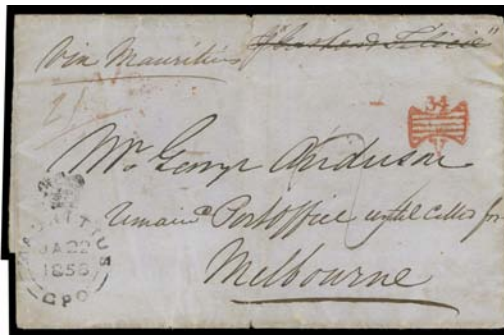 Via Mauritius
2/
34
V
Mr George Anderson
Post Office until called for
Melbourne
MAURITIUS
JA 22
1858
GPO